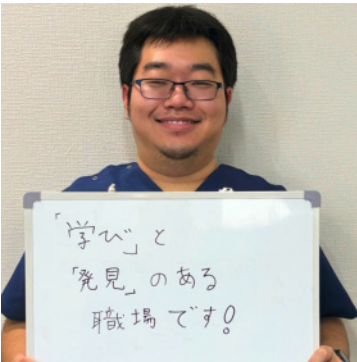 「学び」と
「発見」のある
職場です!